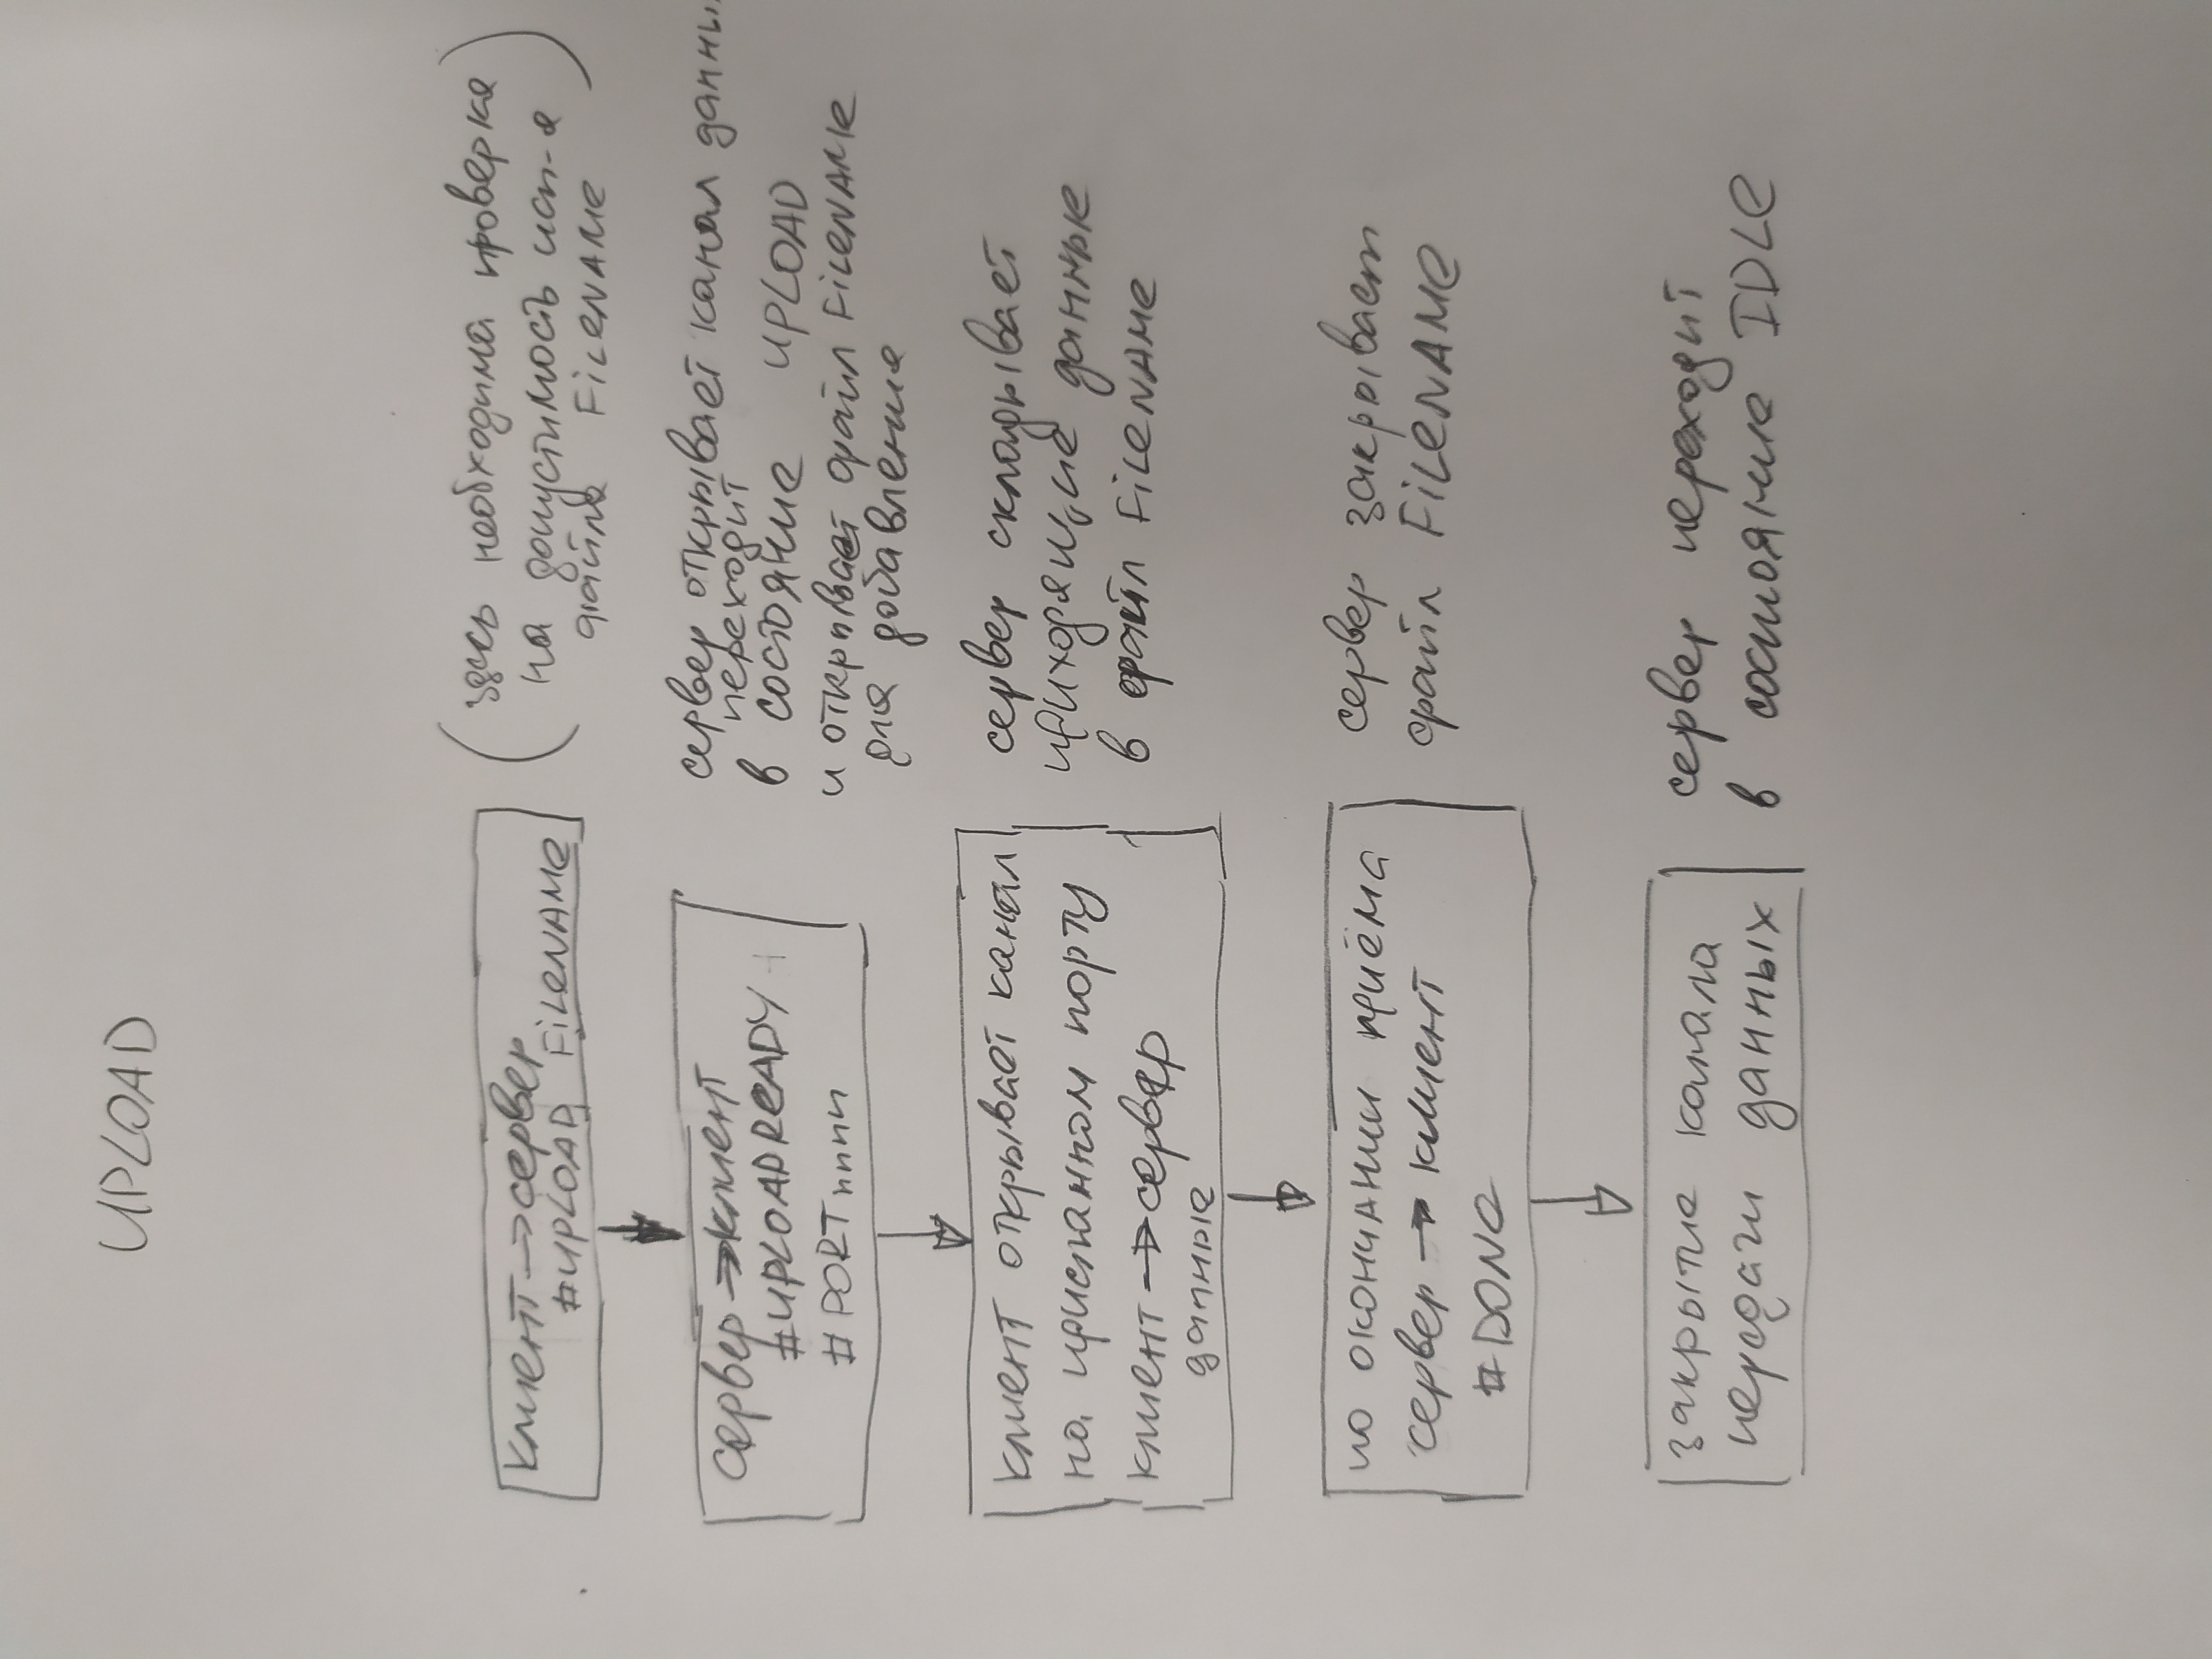 UPLOAD
клиент → сервер
#UPLOAD FILENAME
(здесь необходима проверка
на допустимость исп-я
файла FILENAME)
сервер → клиент
#UPLOADREADY
#PORTnnnn
сервер открывает канал данны
переходит
в состояние UPLOAD
и открывает файл FILENAME
для добавления
клиент открывает канал
на присланном порту
клиент → сервер
данные
сервер складывает
приходящие данные
в файл FILENAME
по окончании приёма
сервер → клиент
#DONE
сервер закрывает
файл FILENAME
закрытие канала
передачи данных
сервер переходит
в состояние IDLE